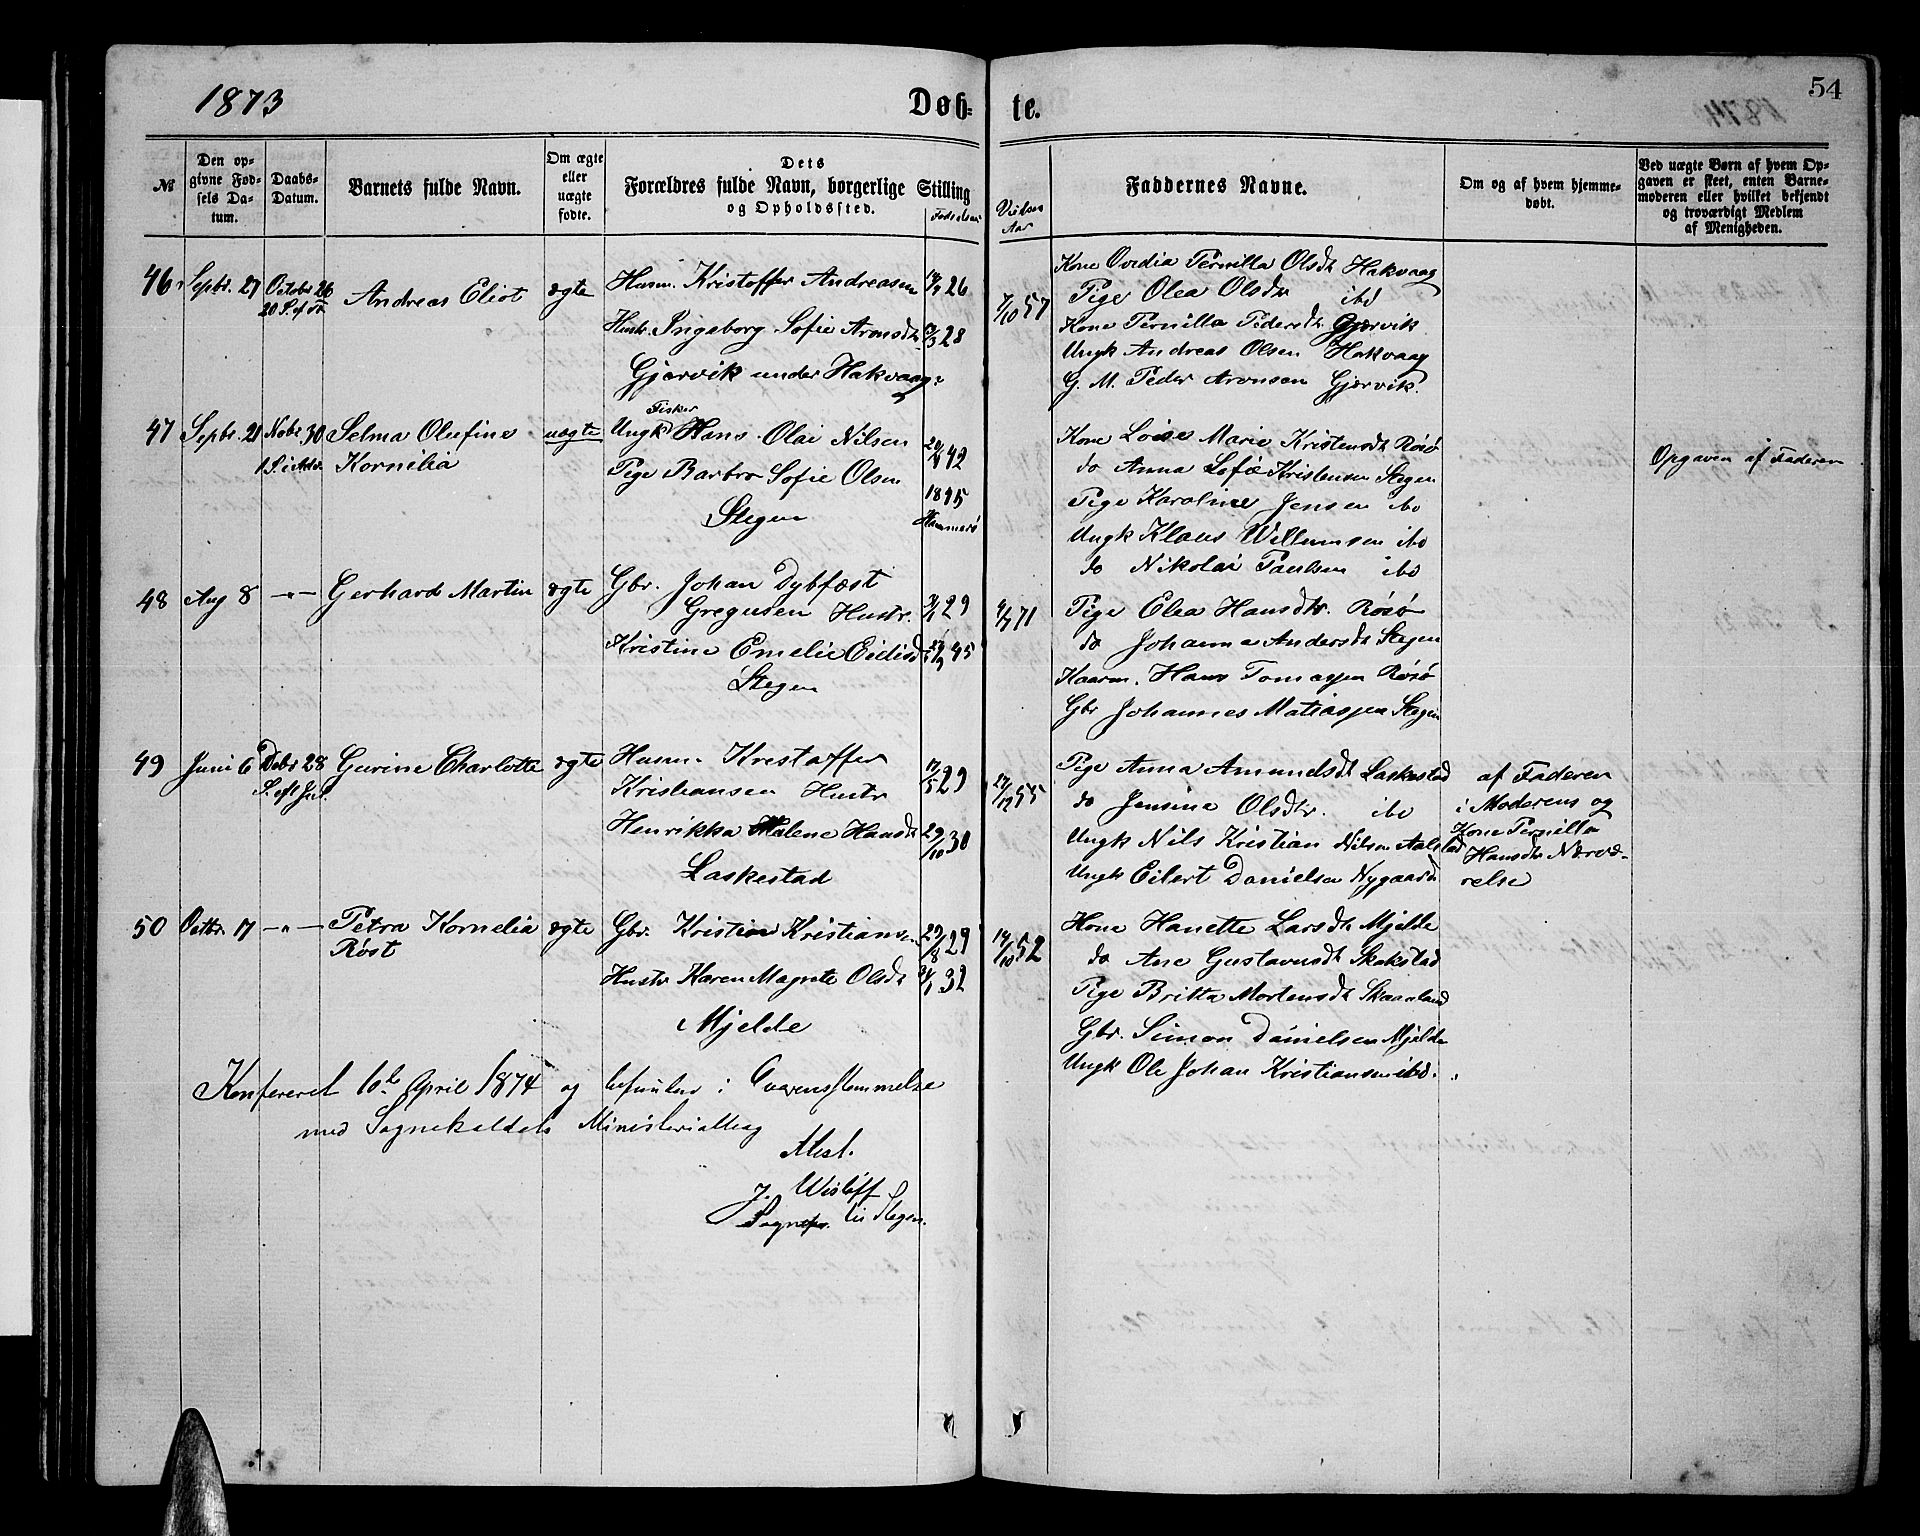 1873
Døb-
te.
54
№
Den op-
givne Fød-
sels Da-
tum.
Daabs-
Datum.
Barnets fulde Navn.
Om ægte
eller
uægte
fødte.
Dets
Forældres fulde Navn, borgerlige Stilling
og Opholdssted.
Fødselsaar
Vielses
Aar
Faddernes Navne.
Om og af hvem hjemme-
døbt.
Ved uægte Børn af hvem Op-
gaven er skeet, enten Barne-
moderen eller hvilket bekjendt
og troværdigt Medlem
af Menigheden.
46. Septbr. 27
October 26
20 S. ef Tr
Andreas Eliot
ægte
Husm. Kristoffer Andreasen
26
Hustr. Ingeborg Sofie Aronsdtr
28
Gjærvik under Hakvaag.
7/10 57
Kone Ovedia Pernilla Olsdtr Hakvaag
Pige Olea Olsdtr ibd
Kone Pernilla Pedersdtr Gjærvik
Ungk Andreas Olsen Hakvaag
G. M. Peder Aronsen Gjærvik.
47 Septbr. 21
Nobr. 30
1 S. i Adv.
Selma Olufine
Kornilia
uægte
Fisker
Ungk Hans Olai Nilsen
42
Pige Barbro Sofie Olsen
1845
Hammerø
Stegen
Kone Loise Marie Kristensdtr Røsø
do Anna Sofie Kristensen Stegen
Pige Karoline Jensen ibd
Ungk Klaus Willumsen ibd
do Nikolai Paulsen ibd
Opgaven af Faderen
48 Aug 8
—"—
Gerhard Martin
ægte
Gbr. Johan Dybfæst
Gregusen Hustr.
29
Kristine Emelie Eidisd
45
Stegen
71
Pige Elea Hansdtr. Røsø
do Johanna Andersdtr Stegen
Kaarm. Hans Tomassen Røsø
Gbr Johannes Matiassen Stegen
49 Juni 6
Debr 28
S. eft Jul.
Gurine Charlotte
ægte
Husm. Krestoffer
Kristiansen Hustr
17/5 29
Henrikka Malene Hansdtr
29/10 30
Laskestad
27/12 55
Pige Anna Amundsdtr Laskestad
do Jensine Olsdtr. ibd
Ungk Nils Kristian Nilsen Aalstad
Ungk Eilert Danielsen Nygaard
af Faderen
i Moderens og
Kone Pernilla
Hansdtr Nærvæ-
relse
50 Octbr. 17
—"—
Petra Kornelia
Røst
ægte
Gbr. Kristian Kristiansen
29/8 29
Hustr Karen Magrete Olsdtr
24/1 32
Mjelde
14/10 52
Kone Hanette Larsdtr Mjelde
do Ane Gustavusdtr Skakstad
Pige Britta Mortensdtr Skaanland
Gbr. Simon Danielsen Mjelde
Ungk Ole Johan Kristiansen ibd.
Konfereret 10de April 1874 og befunden i Overensstemmelse
med Sognekaldets Ministerialbog
Attest.
J. Wisløff
Sognepr. til Stegen.